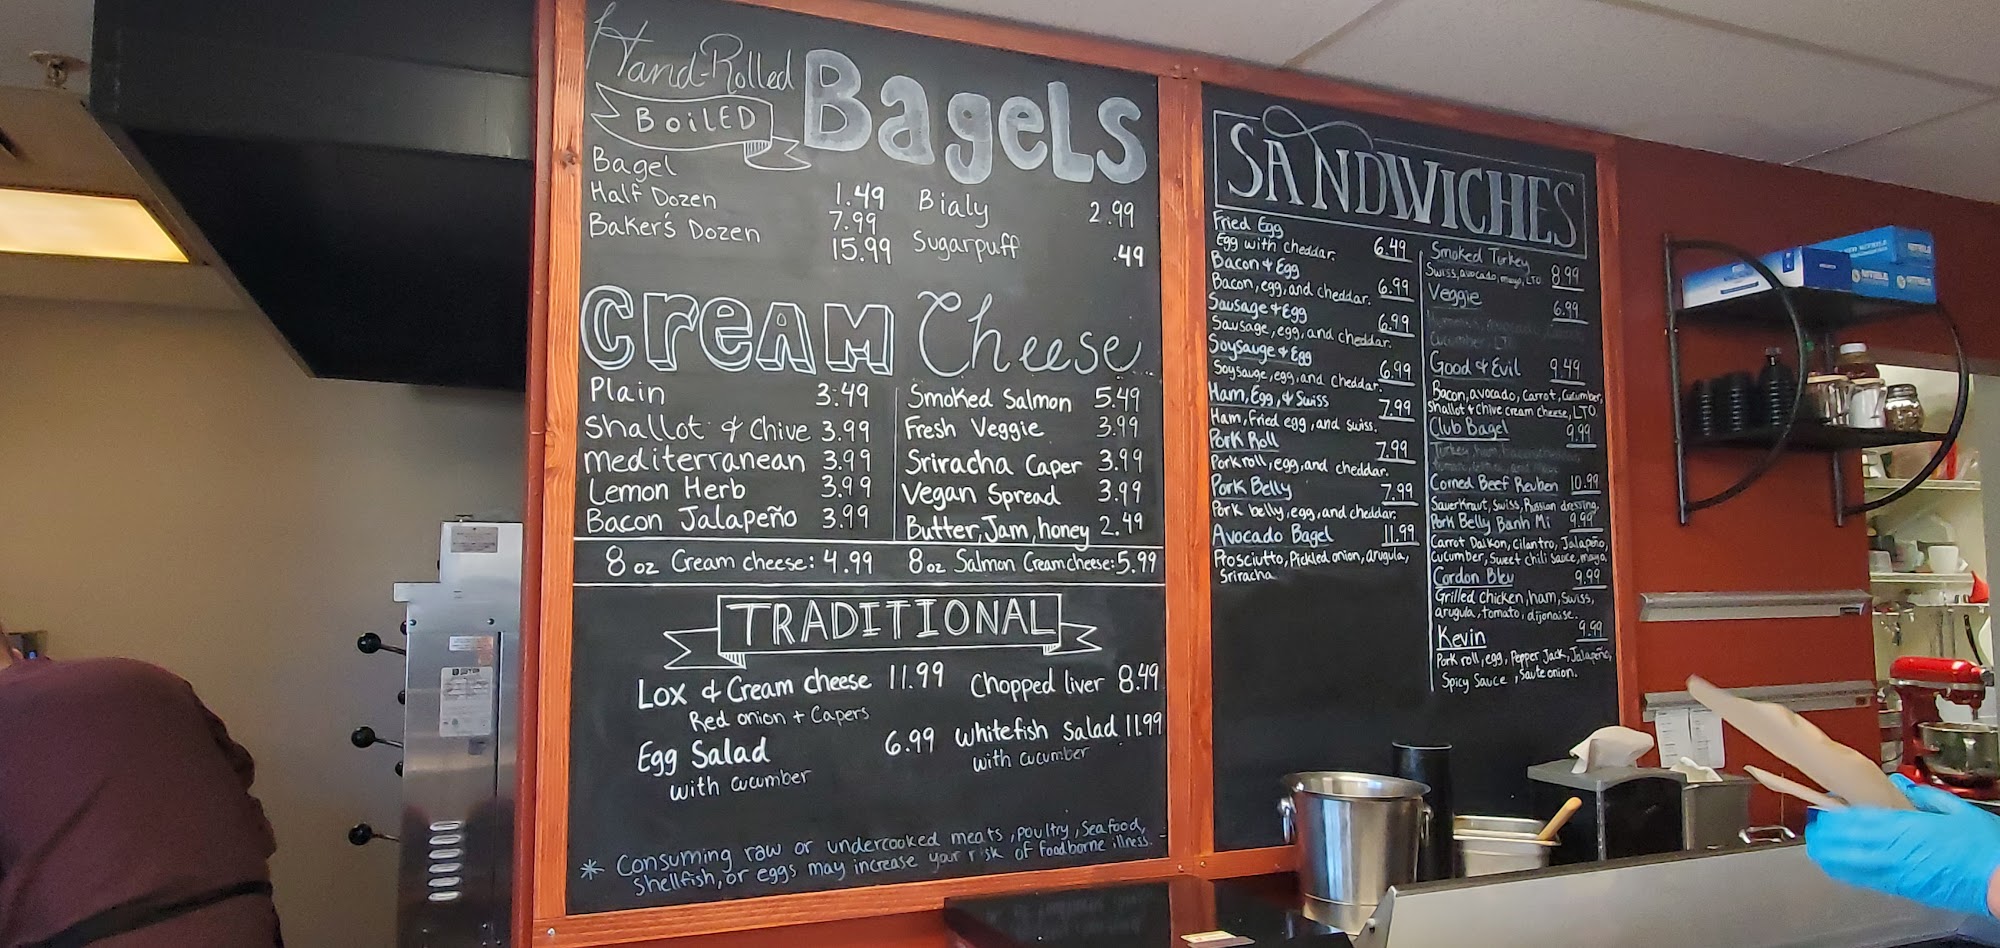 Hand-Rolled
BOILED
BageLs
Bagel 1.49
Half Dozen 7.99
Baker's Dozen 15.99
Bialy 2.99
Sugarpuff .49
CreAM Cheese
Plain 3.49
Shallot & Chive 3.99
Mediterranean 3.99
Lemon Herb 3.99
Bacon Jalapeño 3.99
Smoked Salmon 5.49
Fresh Veggie 3.99
Sriracha Caper 3.99
Vegan Spread 3.99
Butter, Jam, honey 2.49
8 oz Cream cheese: 4.99
8 oz Salmon Cream cheese: 5.99
TRADITIONAL
Lox & Cream cheese 11.99
Red onion + Capers
Egg Salad 6.99
with cucumber
Chopped liver 8.49
Whitefish Salad 11.99
with cucumber
* Consuming raw or undercooked meats, poultry, Seafood,
Shellfish, or eggs may increase your risk of foodborne illness.
SANDWICHES
Fried Egg 6.49
Egg with cheddar.
Bacon & Egg 6.99
Bacon, egg, and cheddar.
Sausage & Egg 6.99
Sausage, egg, and cheddar.
Soysauge & Egg 6.99
Soysauge, egg, and cheddar.
Ham, Egg, & Swiss 7.99
Ham, Fried egg, and swiss.
Pork Roll 7.99
Pork roll, egg, and cheddar.
Pork Belly 7.99
Pork belly, egg, and cheddar.
Avocado Bagel 11.99
Prosciutto, Pickled onion, arugula,
Sriracha
Smoked Turkey 8.99
Swiss, avocado, mayo, LTO
Veggie 6.99
Cucumber, LT
Good & Evil 9.49
Bacon, avocado, Carrot, Cucumber,
Shallot & Chive cream cheese, LTO.
Club Bagel 9.99
Turkey, ham,
Corned Beef Reuben 10.99
Sauerkraut, Swiss, Russian dressing.
Pork Belly Banh Mi 9.99
Carrot Daikon, Cilantro, Jalapeño,
Cucumber, Sweet chili sauce, mayo.
Cordon Bleu 9.99
Grilled chicken, ham, swiss,
arugula, tomato, dijonaise.
Kevin 9.99
Pork roll, egg, Pepper Jack, Jalapeño,
Spicy Sauce, Saute onion.